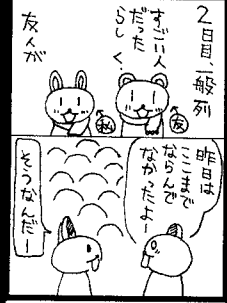 2日目、一般列
すごい人
だった
らしく、
友人が
友
私
昨日は
ここまで
ならんで
なかったよー
そうなんだー